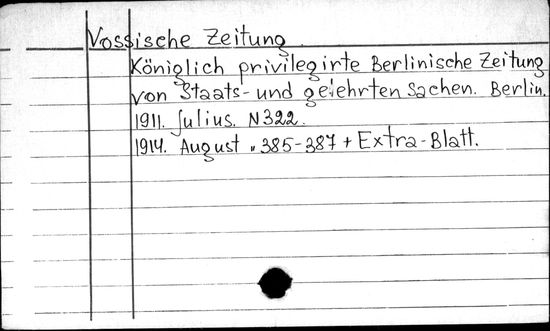 Vossische Zeitung.
Königlich privilegirte Berlinische Zeitung
von Staats- und gelehrten Sachen. Berlin.
1911. Julius. N 322.
1914. August " 385-387 + Extra-Blatt.